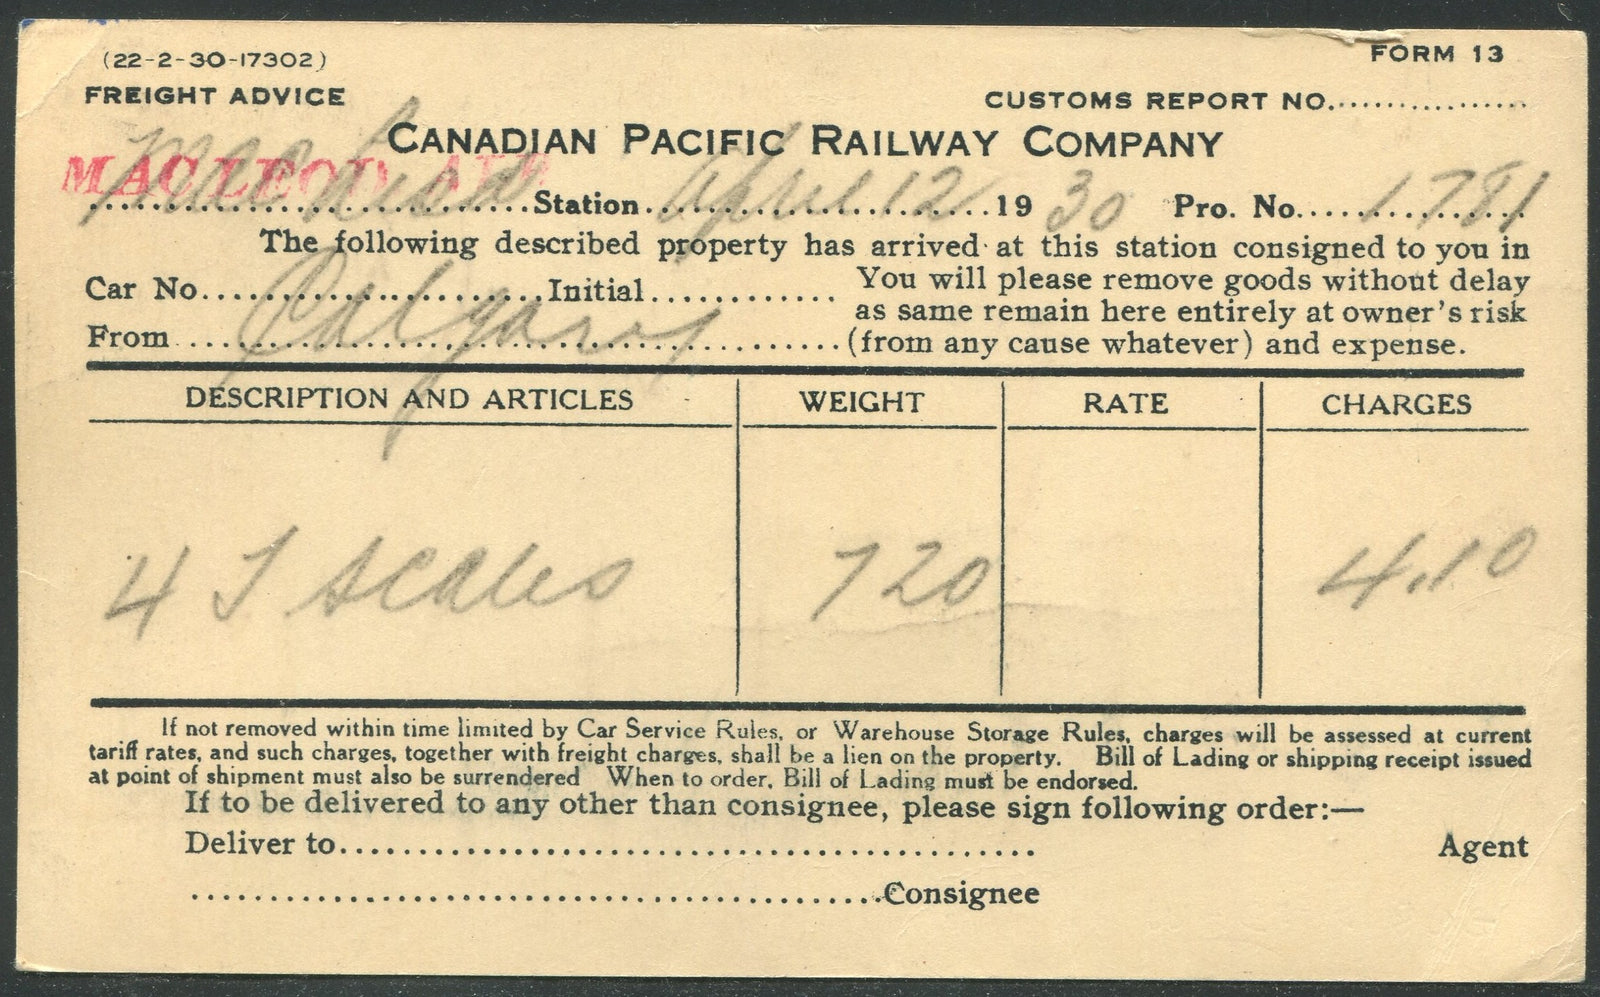 (22-2-30-17302)
FORM 13
FREIGHT ADVICE
CUSTOMS REPORT NO.................
CANADIAN PACIFIC RAILWAY COMPANY
MACLEOD ALTA
Macleod Station April 12 1930 Pro. No. 1781
The following described property has arrived at this station consigned to you in
Car No.......................Initial............. You will please remove goods without delay
as same remain here entirely at owner's risk
From Calgary (from any cause whatever) and expense.
DESCRIPTION AND ARTICLES WEIGHT RATE CHARGES
4 T Scales 720 4.10
If not removed within time limited by Car Service Rules, or Warehouse Storage Rules, charges will be assessed at current
tariff rates, and such charges, together with freight charges, shall be a lien on the property. Bill of Lading or shipping receipt issued
at point of shipment must also be surrendered When to order, Bill of Lading must be endorsed.
If to be delivered to any other than consignee, please sign following order:—
Deliver to............................................. Agent
.............................................Consignee